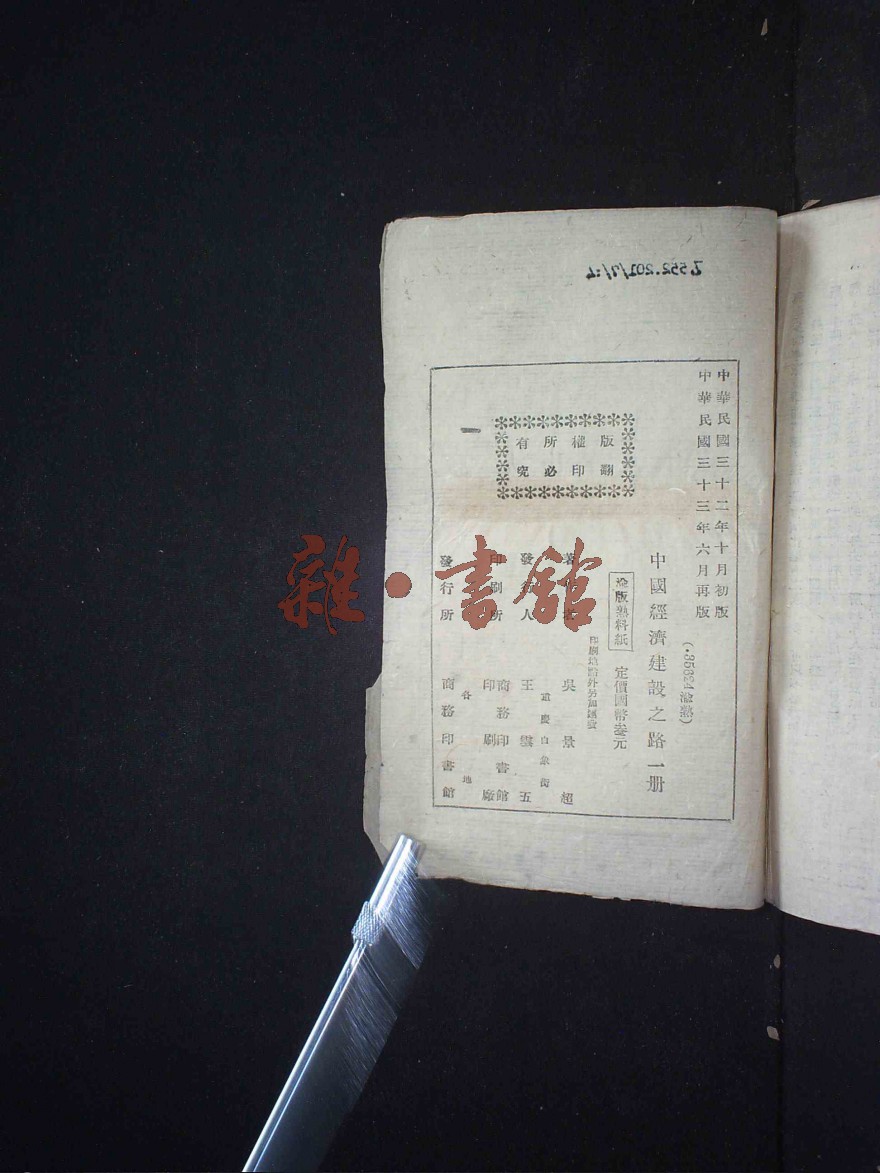 7.552.201/7/:4
中華民國三十二年十月初版
中華民國三十三年六月再版
(·35824渝熟)
中國經濟建設之路一册
渝版熟料紙 定價國幣叁元
印刷地點外另加運費
版權所有
翻印必究
著 吳景超
重慶白象街
發行人 王雲五
印刷所 商務印書館
印刷廠
各地
發行所 商務印書館
雜·書館